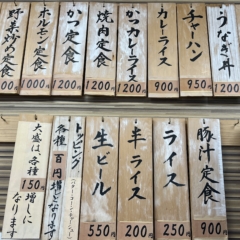 うなぎ丼
1200
チャーハン
950
カレーライス
900
かつカレーライス
1200
焼肉定食
1200
かつ定食
1200
ホルモン定食
1000
野菜炒め定食
000
豚汁定食
900
ライス
250
半ライス
200
生ビール
550
トッピング
各種百円増となります
大盛は各種
150円増しに
なります